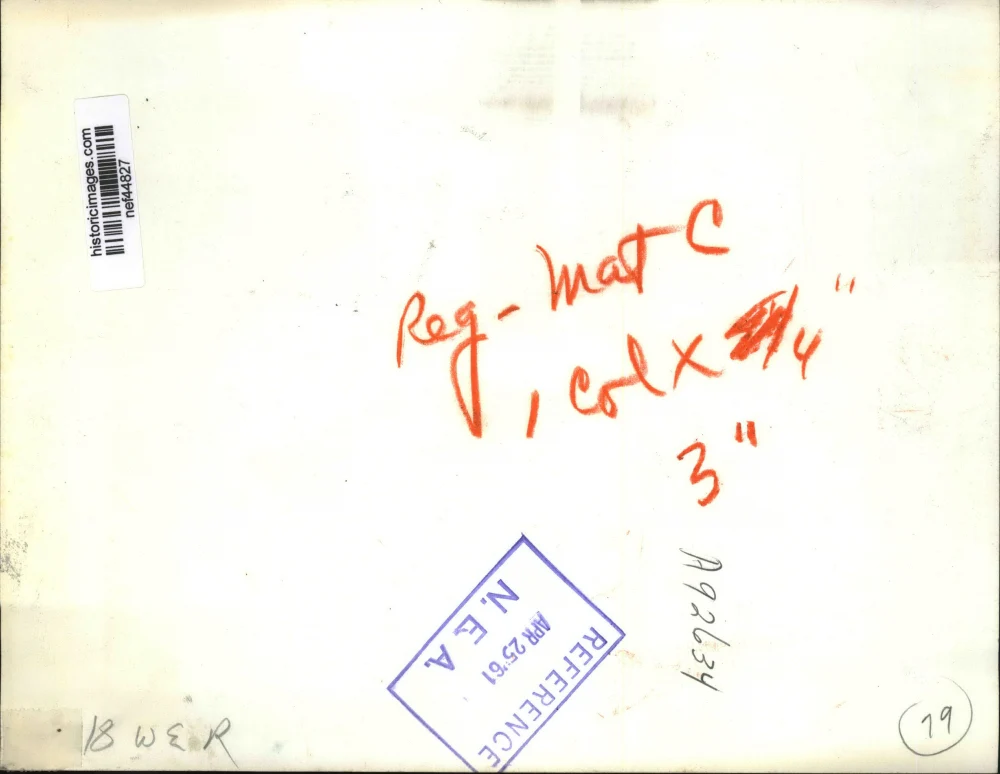 historicimages.com
nef44827
Reg - Mat C
1 Col X 4"
3"
REFERENCE
APR 25 '61
N. E. A.
A92634
18 W E R
79